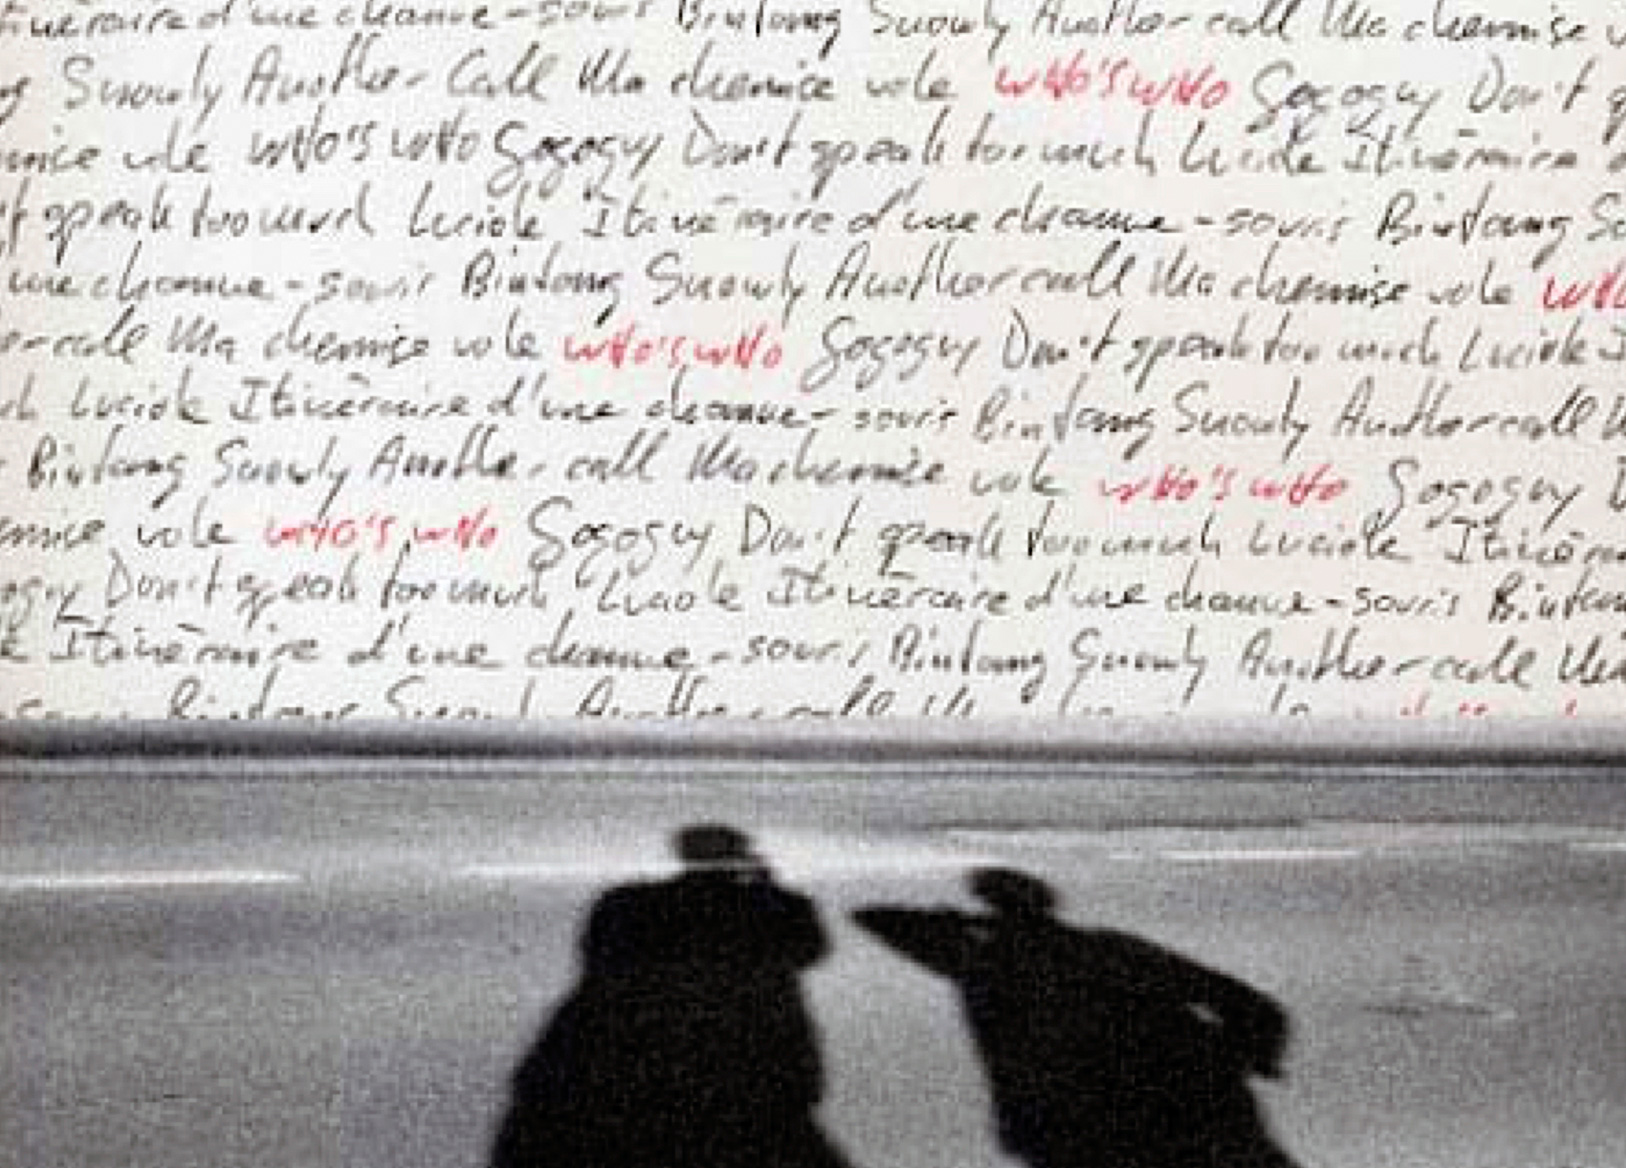 d'une chauve-souris Bintang Snowly Another call Ma chemise
Snowly Another Call Ma chemise vole WHO'S WHO Gogoguy Don't
vole WHO'S WHO Gogoguy Don't speak too much Luciole Itinéraire
speak too much Luciole Itinéraire d'une chauve-souris Bintang
une chauve-souris Bintang Snowly Another call Ma chemise vole
call Ma chemise vole WHO'S WHO Gogoguy Don't speak too much Luciole
Luciole Itinéraire d'une chauve-souris Bintang Snowly Another call
Bintang Snowly Another call Ma chemise vole WHO'S WHO Gogoguy
vole WHO'S WHO Gogoguy Don't speak too much Luciole
Don't speak too much Luciole Itinéraire d'une chauve-souris
Itinéraire d'une chauve-souris Bintang Snowly Another call
Another call